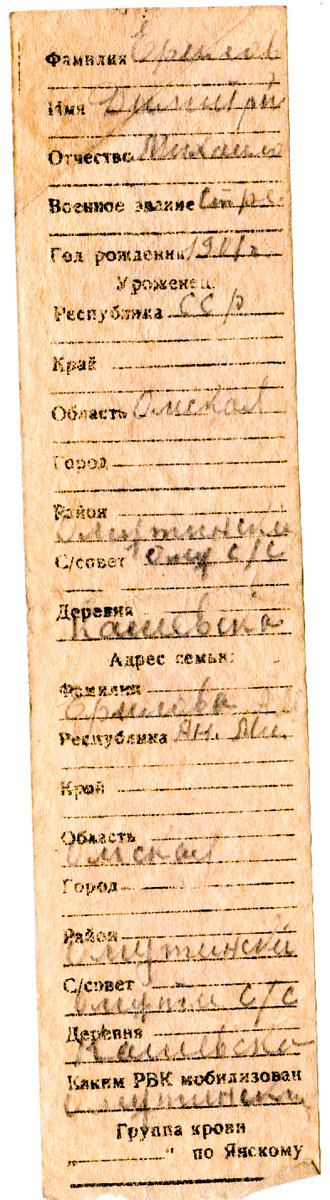 Фамилия Ермилов
Имя Дмитрий
Отчество Михайло
Военное звание Стре.
Год рождения 1901г
Уроженец:
Республика ССР
Край
Область Омская
Город
Район
Омутински
С/совет Омут С/С
Деревня
Кашевско
Адрес семьи:
Фамилия
Ермилова
Республика Ан. Ми.
Край
Область
Омская
Город
Район
Омутински
С/совет
Омути С/С
Деревня
Кашевско
Каким РВК мобилизован
Омутински
Группа крови
„ “ по Янскому